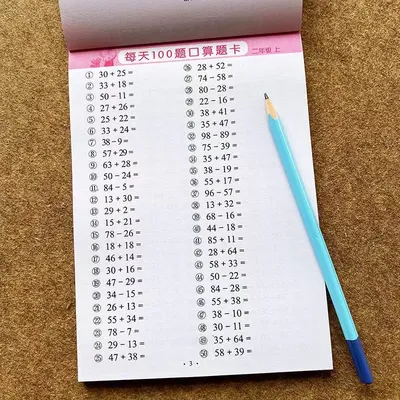 每天100题口算题卡 二年级 上
① 30 + 25 =
② 33 + 18 =
③ 50 - 11 =
④ 27 + 26 =
⑤ 25 + 22 =
⑥ 33 + 24 =
⑦ 38 - 9 =
⑧ 57 + 29 =
⑨ 63 + 28 =
⑩ 50 - 24 =
⑪ 84 - 5 =
⑫ 13 + 30 =
⑬ 29 + 2 =
⑭ 15 + 21 =
⑮ 78 - 26 =
⑯ 18 + 18 =
⑰ 46 + 14 =
⑱ 30 + 16 =
⑲ 47 - 29 =
⑳ 34 - 15 =
㉑ 26 + 13 =
㉒ 55 + 34 =
㉓ 78 - 7 =
㉔ 29 - 13 =
㉕ 47 + 38 =
㉖ 28 + 52 =
㉗ 74 - 58 =
㉘ 80 - 28 =
㉙ 22 - 16 =
㉚ 38 + 41 =
㉛ 35 + 47 =
㉜ 98 - 89 =
㉝ 75 - 39 =
㉞ 35 + 47 =
㉟ 38 - 19 =
㊱ 55 + 17 =
㊲ 96 - 57 =
㊳ 13 + 32 =
㊴ 68 - 16 =
㊵ 44 - 18 =
㊶ 85 + 11 =
㊷ 28 + 64 =
㊸ 58 + 33 =
㊹ 50 - 22 =
㊺ 84 - 28 =
㊻ 55 + 38 =
㊼ 38 - 10 =
㊽ 30 - 11 =
㊾ 35 + 64 =
㊿ 58 + 39 =
· 3 ·